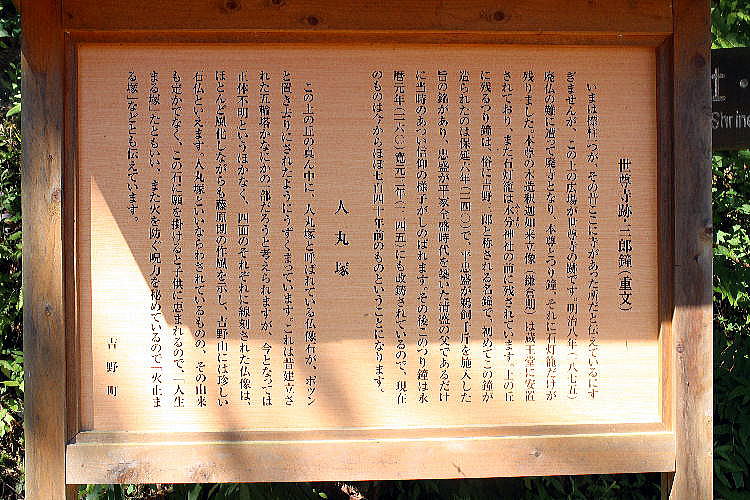 世尊寺跡・三郎鐘(重文)
いまは標柱一つが、その昔ここに寺があった所だと伝えているにす
ぎませんが、この上の広場が世尊寺の跡です。明治八年(一八七五)
廃仏の難に遭って廃寺となり、本尊とつり鐘、それに石灯籠だけが
残りました。本尊の木造釈迦如来立像(鎌倉期)は蔵王堂に安置
されており、また石灯籠は水分神社の前に残されています。上の丘
に残るつり鐘は、俗に吉野三郎と称される名鐘で、初めてこの鐘が
造られたのは保延六年(一一四〇)で、平忠盛が鵜飼千斤を施入した
旨の銘があり、忠盛が平家全盛時代を築いた清盛の父であるだけ
に当時のあつい信仰の様子がしのばれます。その後このつり鐘は永
暦元年(一一六〇)寛元二年(一二四五)にも改鋳されているので、現在
のものは今からほぼ七百四十年前のものということになります。
人丸塚
この上の丘の真ん中に、人丸塚と呼ばれている仏像石が、ポツン
と置き去りにされたようにうずくまっています。これは昔建立さ
れた五輪塔かなにかの一部だろうと考えられますが、今となっては
正体不明というほかなく、四面のそれぞれに線刻された仏像は、
ほとんど風化しながらも藤原期の作風を示し、吉野山には珍しい
石仏といえます。人丸塚といいならわされているものの、その由来
も定かでなく、この石に願を掛けると子供に恵まれるので、「人生
まる塚」だともいい、また火を防ぐ呪力を秘めているので「火止ま
る塚」などとも伝えています。
吉野町
Shrine